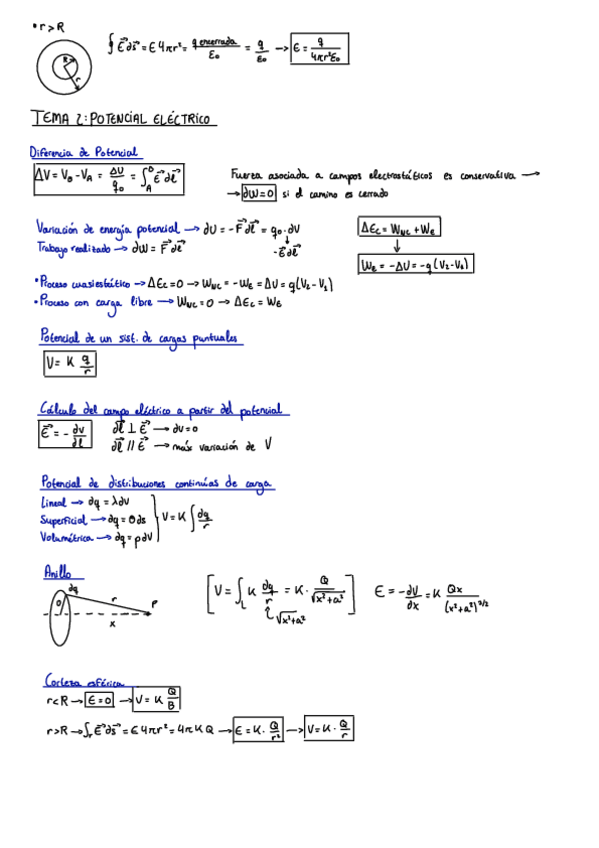 • r > R
∮ E⃗ ds⃗ = E 4πr² = q encerrada / ε₀ = q / ε₀ → E = q / 4πr²ε₀
R
r
TEMA 2: POTENCIAL ELÉCTRICO
Diferencia de Potencial
ΔV = V_B - V_A = ΔU / q₀ = ∫_A^B E⃗ dl⃗
Fuerza asociada a campos electrostáticos es conservativa →
→ ∂W=0 si el camino es cerrado
Variación de energía potencial → ∂U = -F⃗ dl⃗ = q₀ · ∂V
-E⃗ dl⃗
Trabajo realizado → ∂W = F⃗ dl⃗
ΔEc = W_NC + W_E
↓
W_E = -ΔU = -q (V₂ - V₁)
• Proceso cuasiestático → ΔEc = 0 → W_NC = -W_E = ΔU = q (V₂ - V₁)
• Proceso con carga libre → W_NC = 0 → ΔEc = W_E
Potencial de un sist. de cargas puntuales
V = K q / r
Cálculo del campo eléctrico a partir del potencial
E⃗ = - ∂V / ∂l
dl⃗ ⊥ E⃗ → ∂V = 0
dl⃗ // E⃗ → máx variación de V
Potencial de distribuciones continúas de carga
Lineal → ∂q = λ∂V
Superficial → ∂q = σ∂s
Volumétrica → ∂q = ρ∂V
V = K ∫ ∂q / r
Anillo
∂q
r
P
x
[ V = ∫_L K ∂q / r = K · Q / √x²+a² ]
√x²+a²
E = - ∂V / ∂x = K Qx / (x²+a²)^3/2
Corteza esférica
r<R → E=0 → V = K Q / R
r>R → ∫ E⃗ ds⃗ = E 4πr² = 4πKQ → E = K · Q / r² → V = K · Q / r